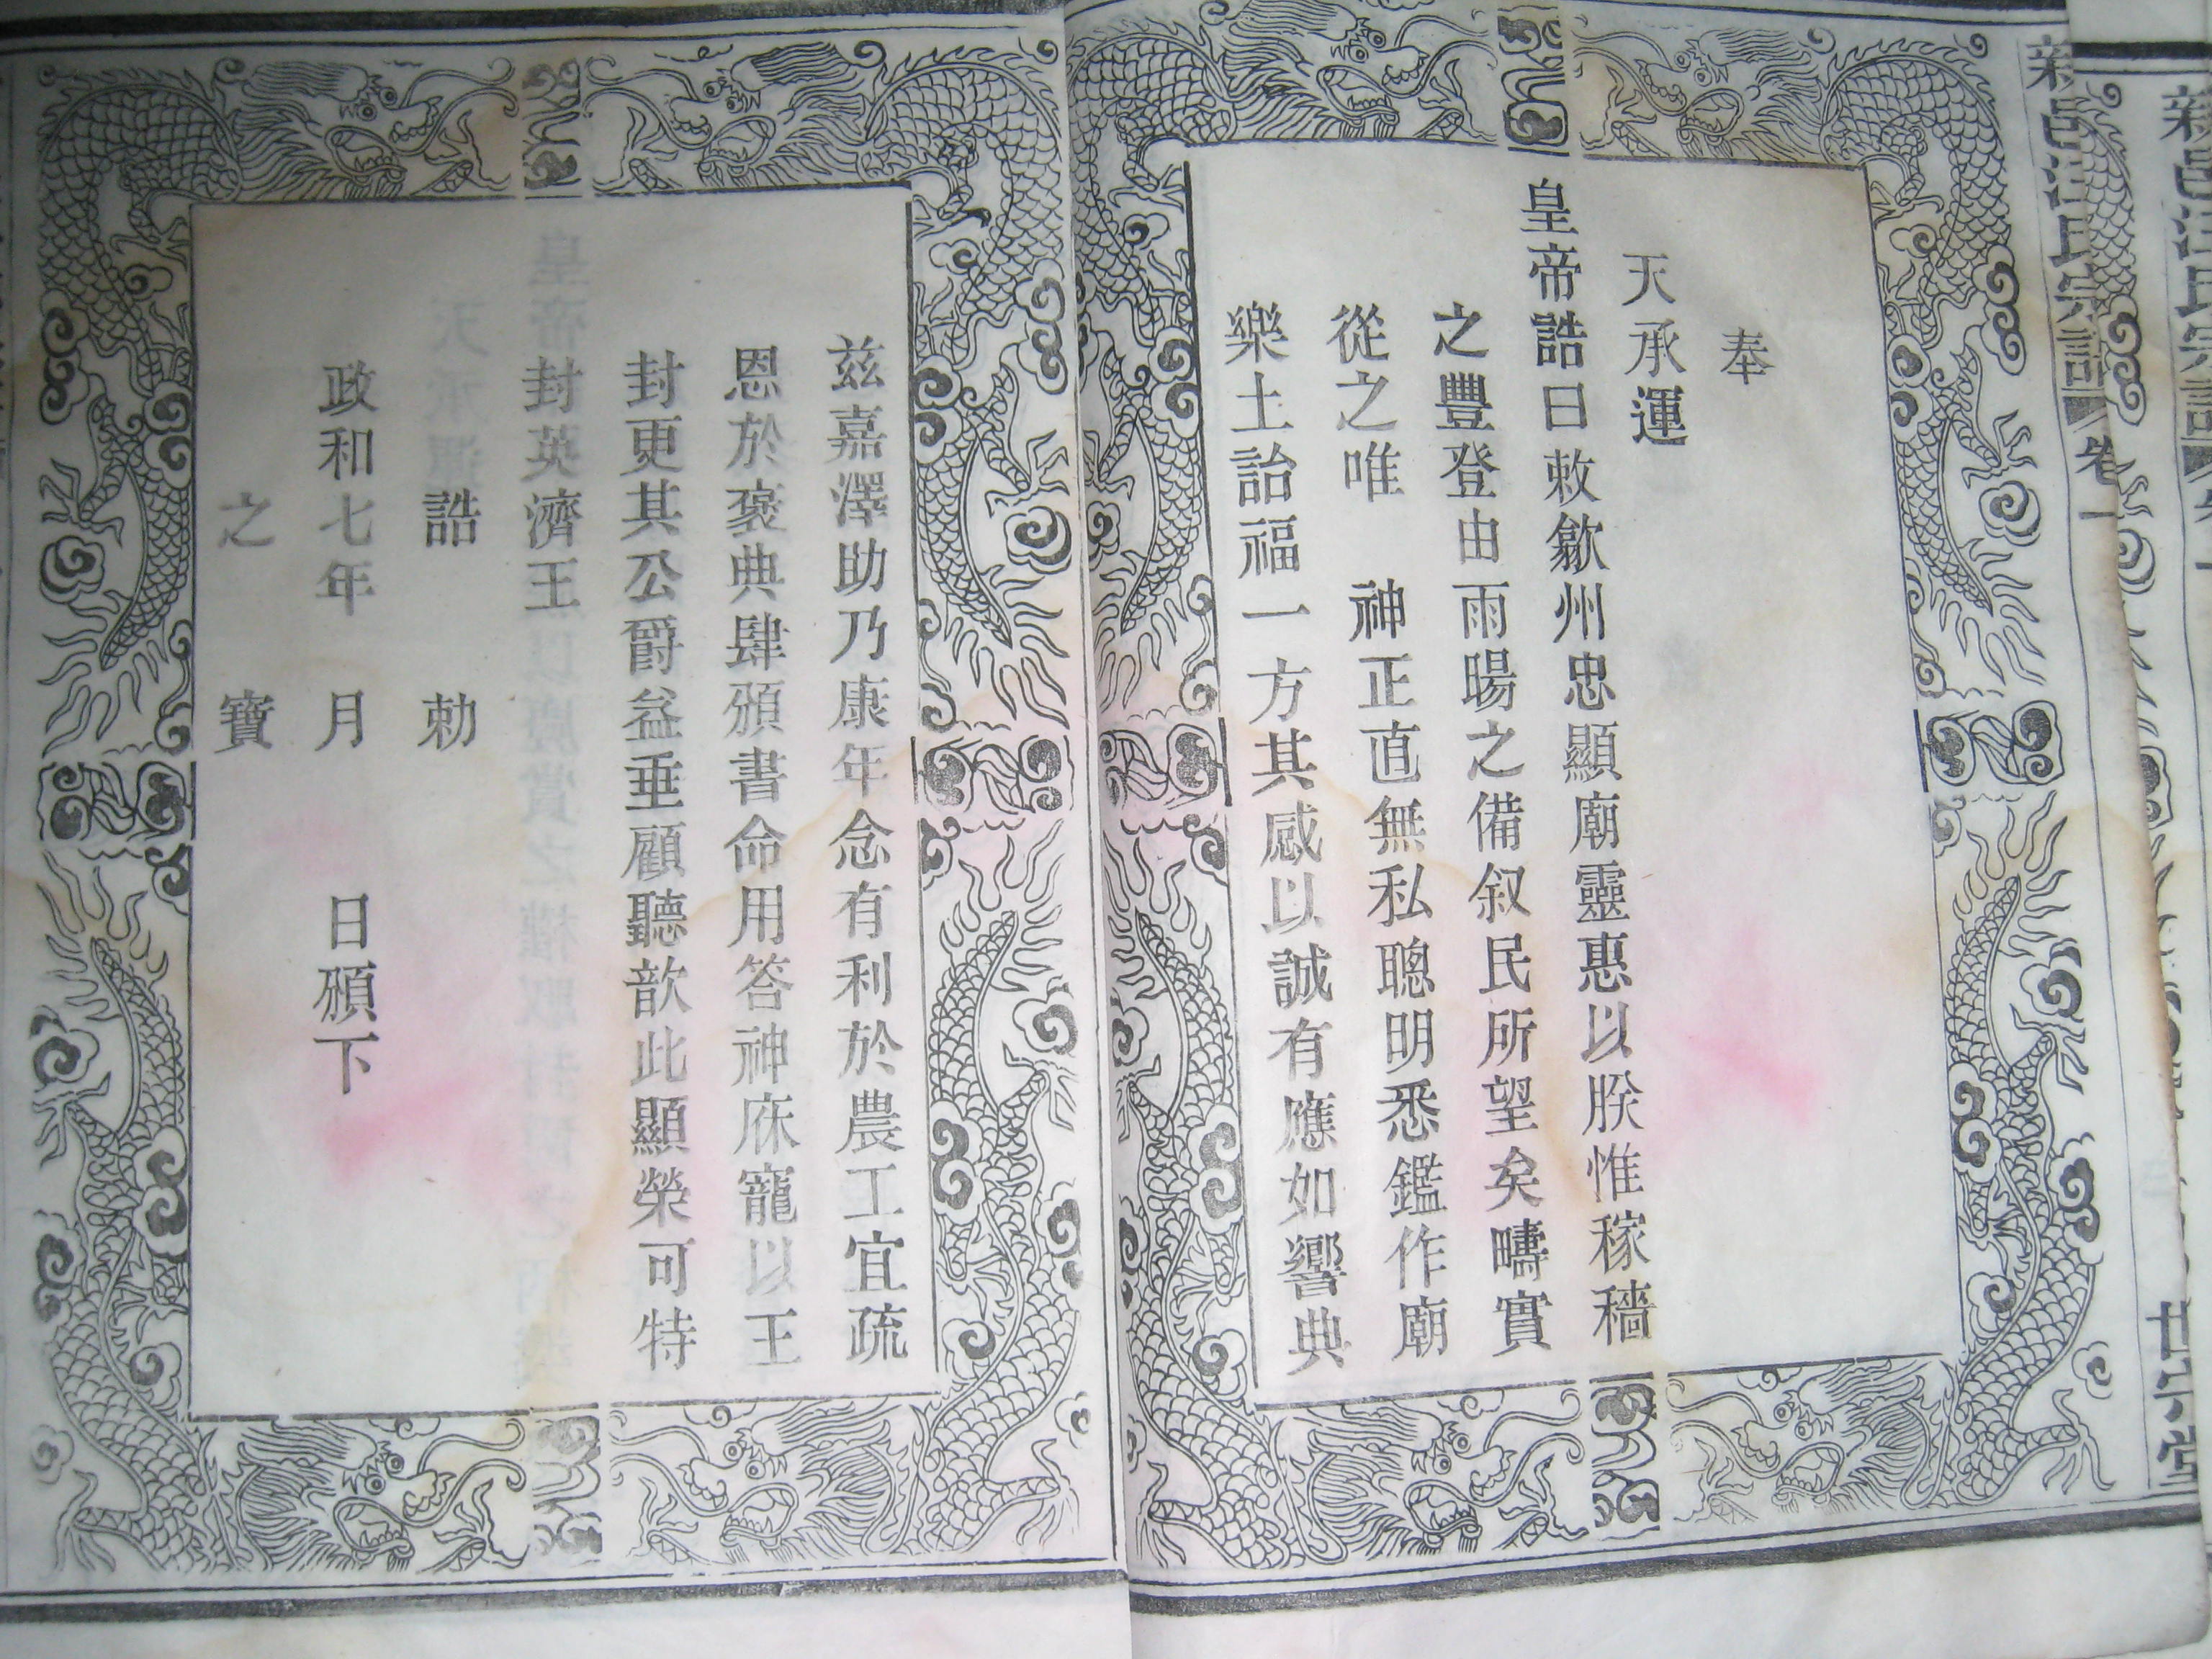 新邑汪氏宗譜 卷一
世
奉
天承運
皇帝誥曰敕歙州忠顯廟靈惠以朕惟稼穡
之豐登由雨暘之備叙民所望矣疇實
從之唯 神正直無私聰明悉鑑作廟
樂土詒福一方其感以誠有應如響典
兹嘉澤助乃康年念有利於農工宜疏
恩於褒典肆頒書命用答神庥寵以王
封更其公爵益垂顧聽歆此顯榮可特
封英濟王
誥 勅
政和七年 月 日頒下
之 寶